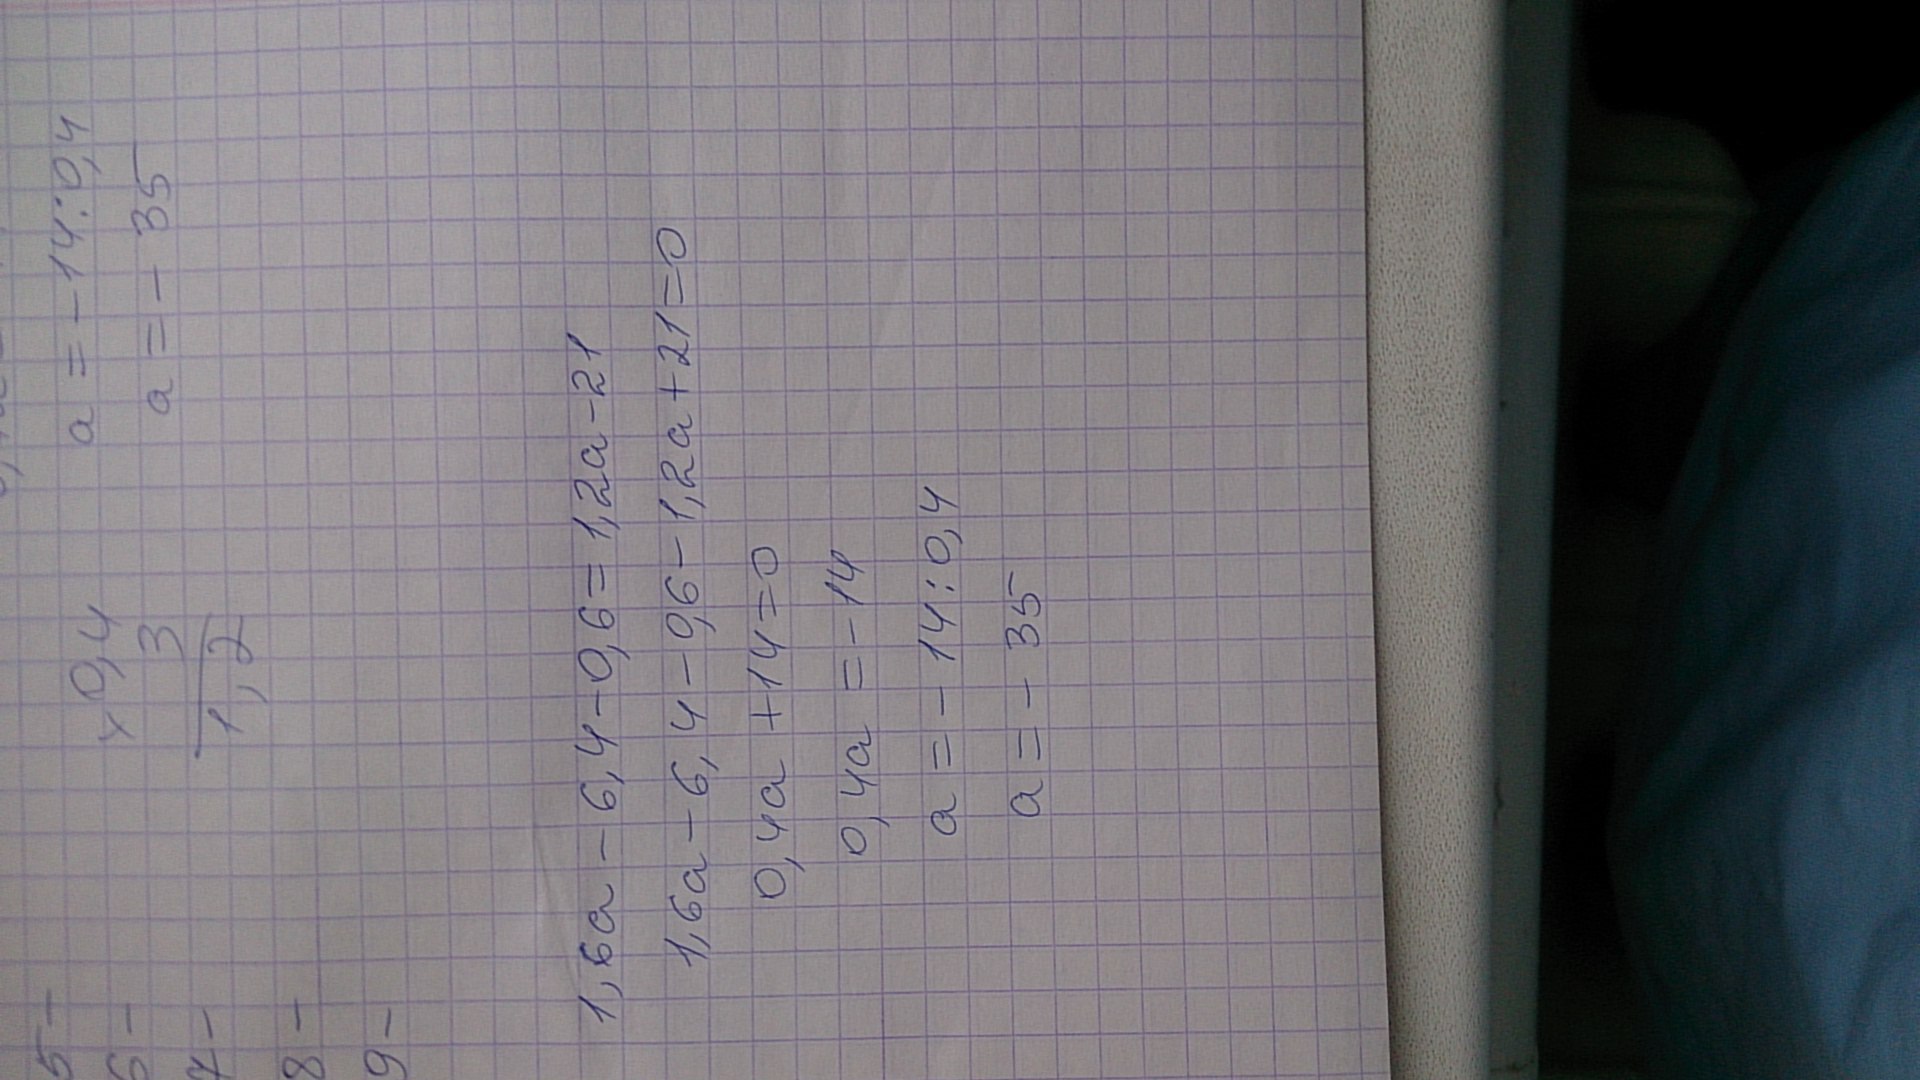 a = -14:0,4
a = - 35
× 0,4
3
1,2
5-
6-
7-
8-
9-
1,6a - 6,4 - 0,6 = 1,2a - 21
1,6a - 6,4 - 0,6 - 1,2a + 21 = 0
0,4a + 14 = 0
0,4a = -14
a = - 14 : 0,4
a = - 35